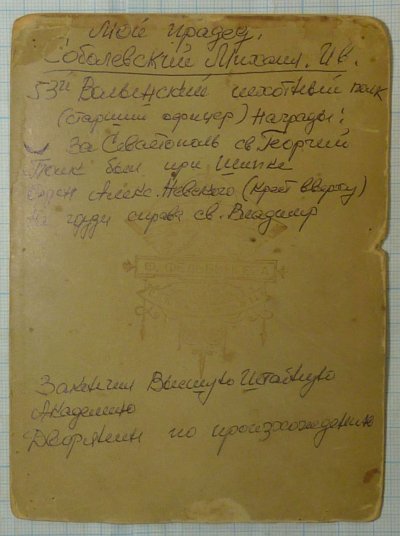 Мой прадед.
Соболевский Михаил. Ив.
53й Волынский пехотный полк
(старший офицер) Награды:
За Севастополь св. Георгий
Полк был при Шипке
Орден Алекс. Невского (крест вверху)
На груди справа св. Владимир
Закончил Высшую Штабную
Академию
Дворянин по происхождению